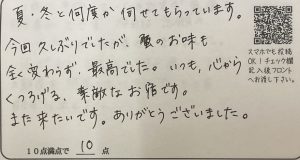 夏・冬と何度か何せてもらっています。
今回久しぶりでしたが、蟹のお味も
全く変わらず、最高でした。いつも、心から
くつろげる、素敵なお宿です。
また来たいです。ありがとうございました。
10点満点で 10 点
スマホでも投稿
OK!チェック欄
記入後フロント
へお渡し下さい。